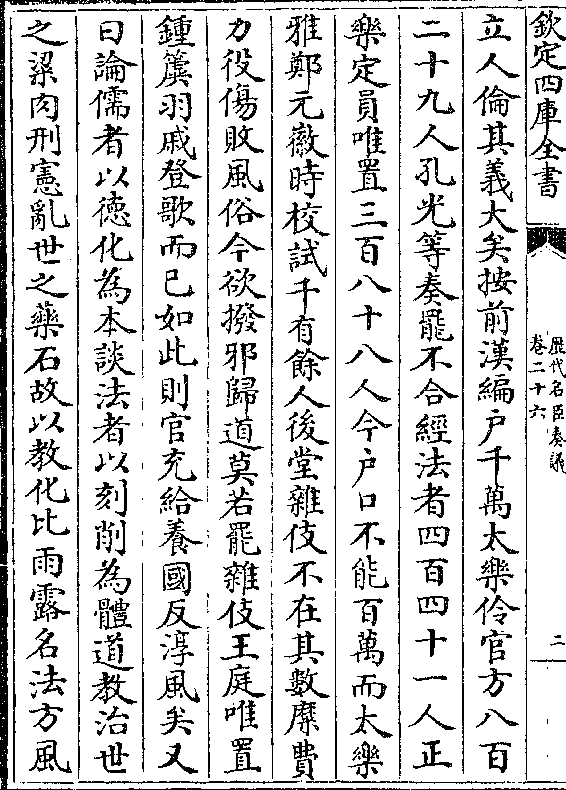 欽定四庫全書
歷代名臣奏議
卷二十六
二
立人倫其義大矣按前漢編户千萬太樂伶官方八百
二十九人孔光等奏罷不合經法者四百四十一人正
樂定員唯置三百八十八人今户口不能百萬而太樂
雅鄭元徽時校試千有餘人後堂雜伎不在其數糜費
力役傷敗風俗今欲撥邪歸道莫若罷雜伎王庭唯置
鍾簴羽戚登歌而已如此則官充給養國反淳風矣又
曰論儒者以德化為本談法者以刻削為體道教治世
之粱肉刑憲亂世之藥石故以教化比雨露名法方風